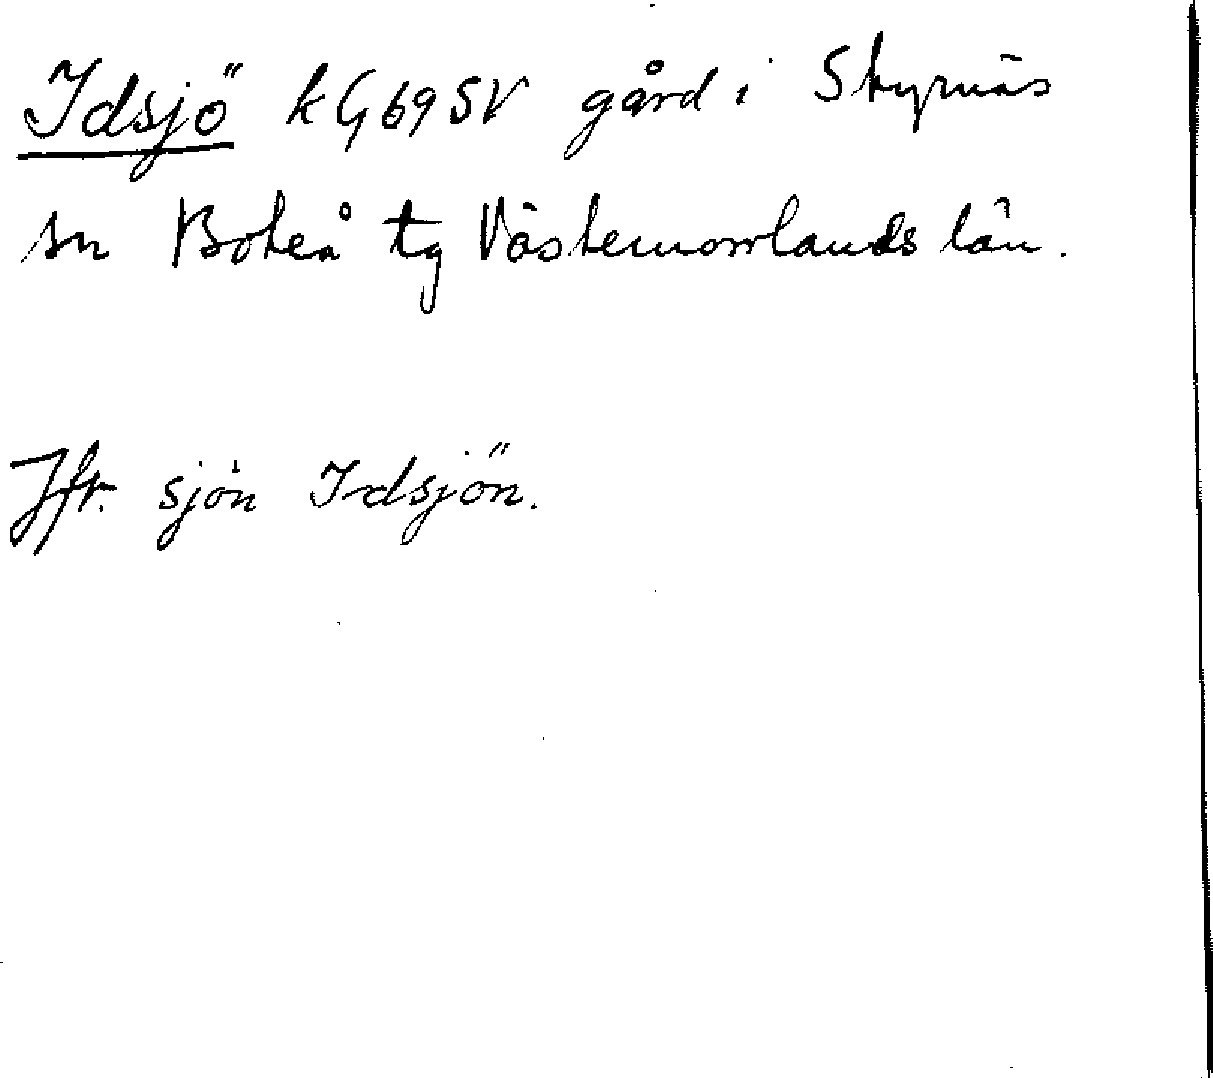 Idsjö kG69SV gård i Styrnäs
sn Boteå tg Västernorrlands län.
Jfr. sjön Idsjön.